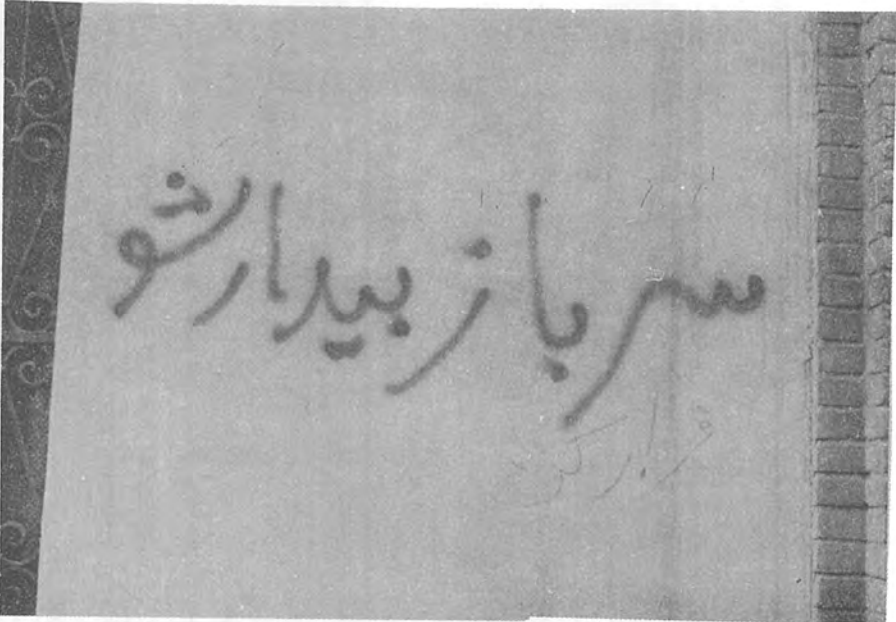 سرباز بیدار شو
فرار کن